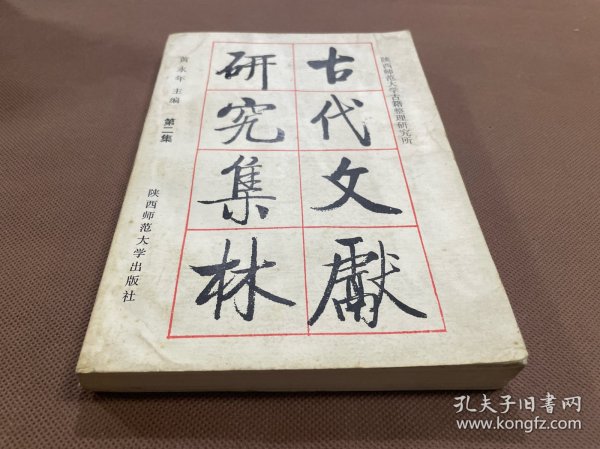 陕西师范大学古籍整理研究所
古代文獻
研究集林
黄永年 主编 第二集
陕西师范大学出版社
孔夫子旧书网
www.kongfz.com